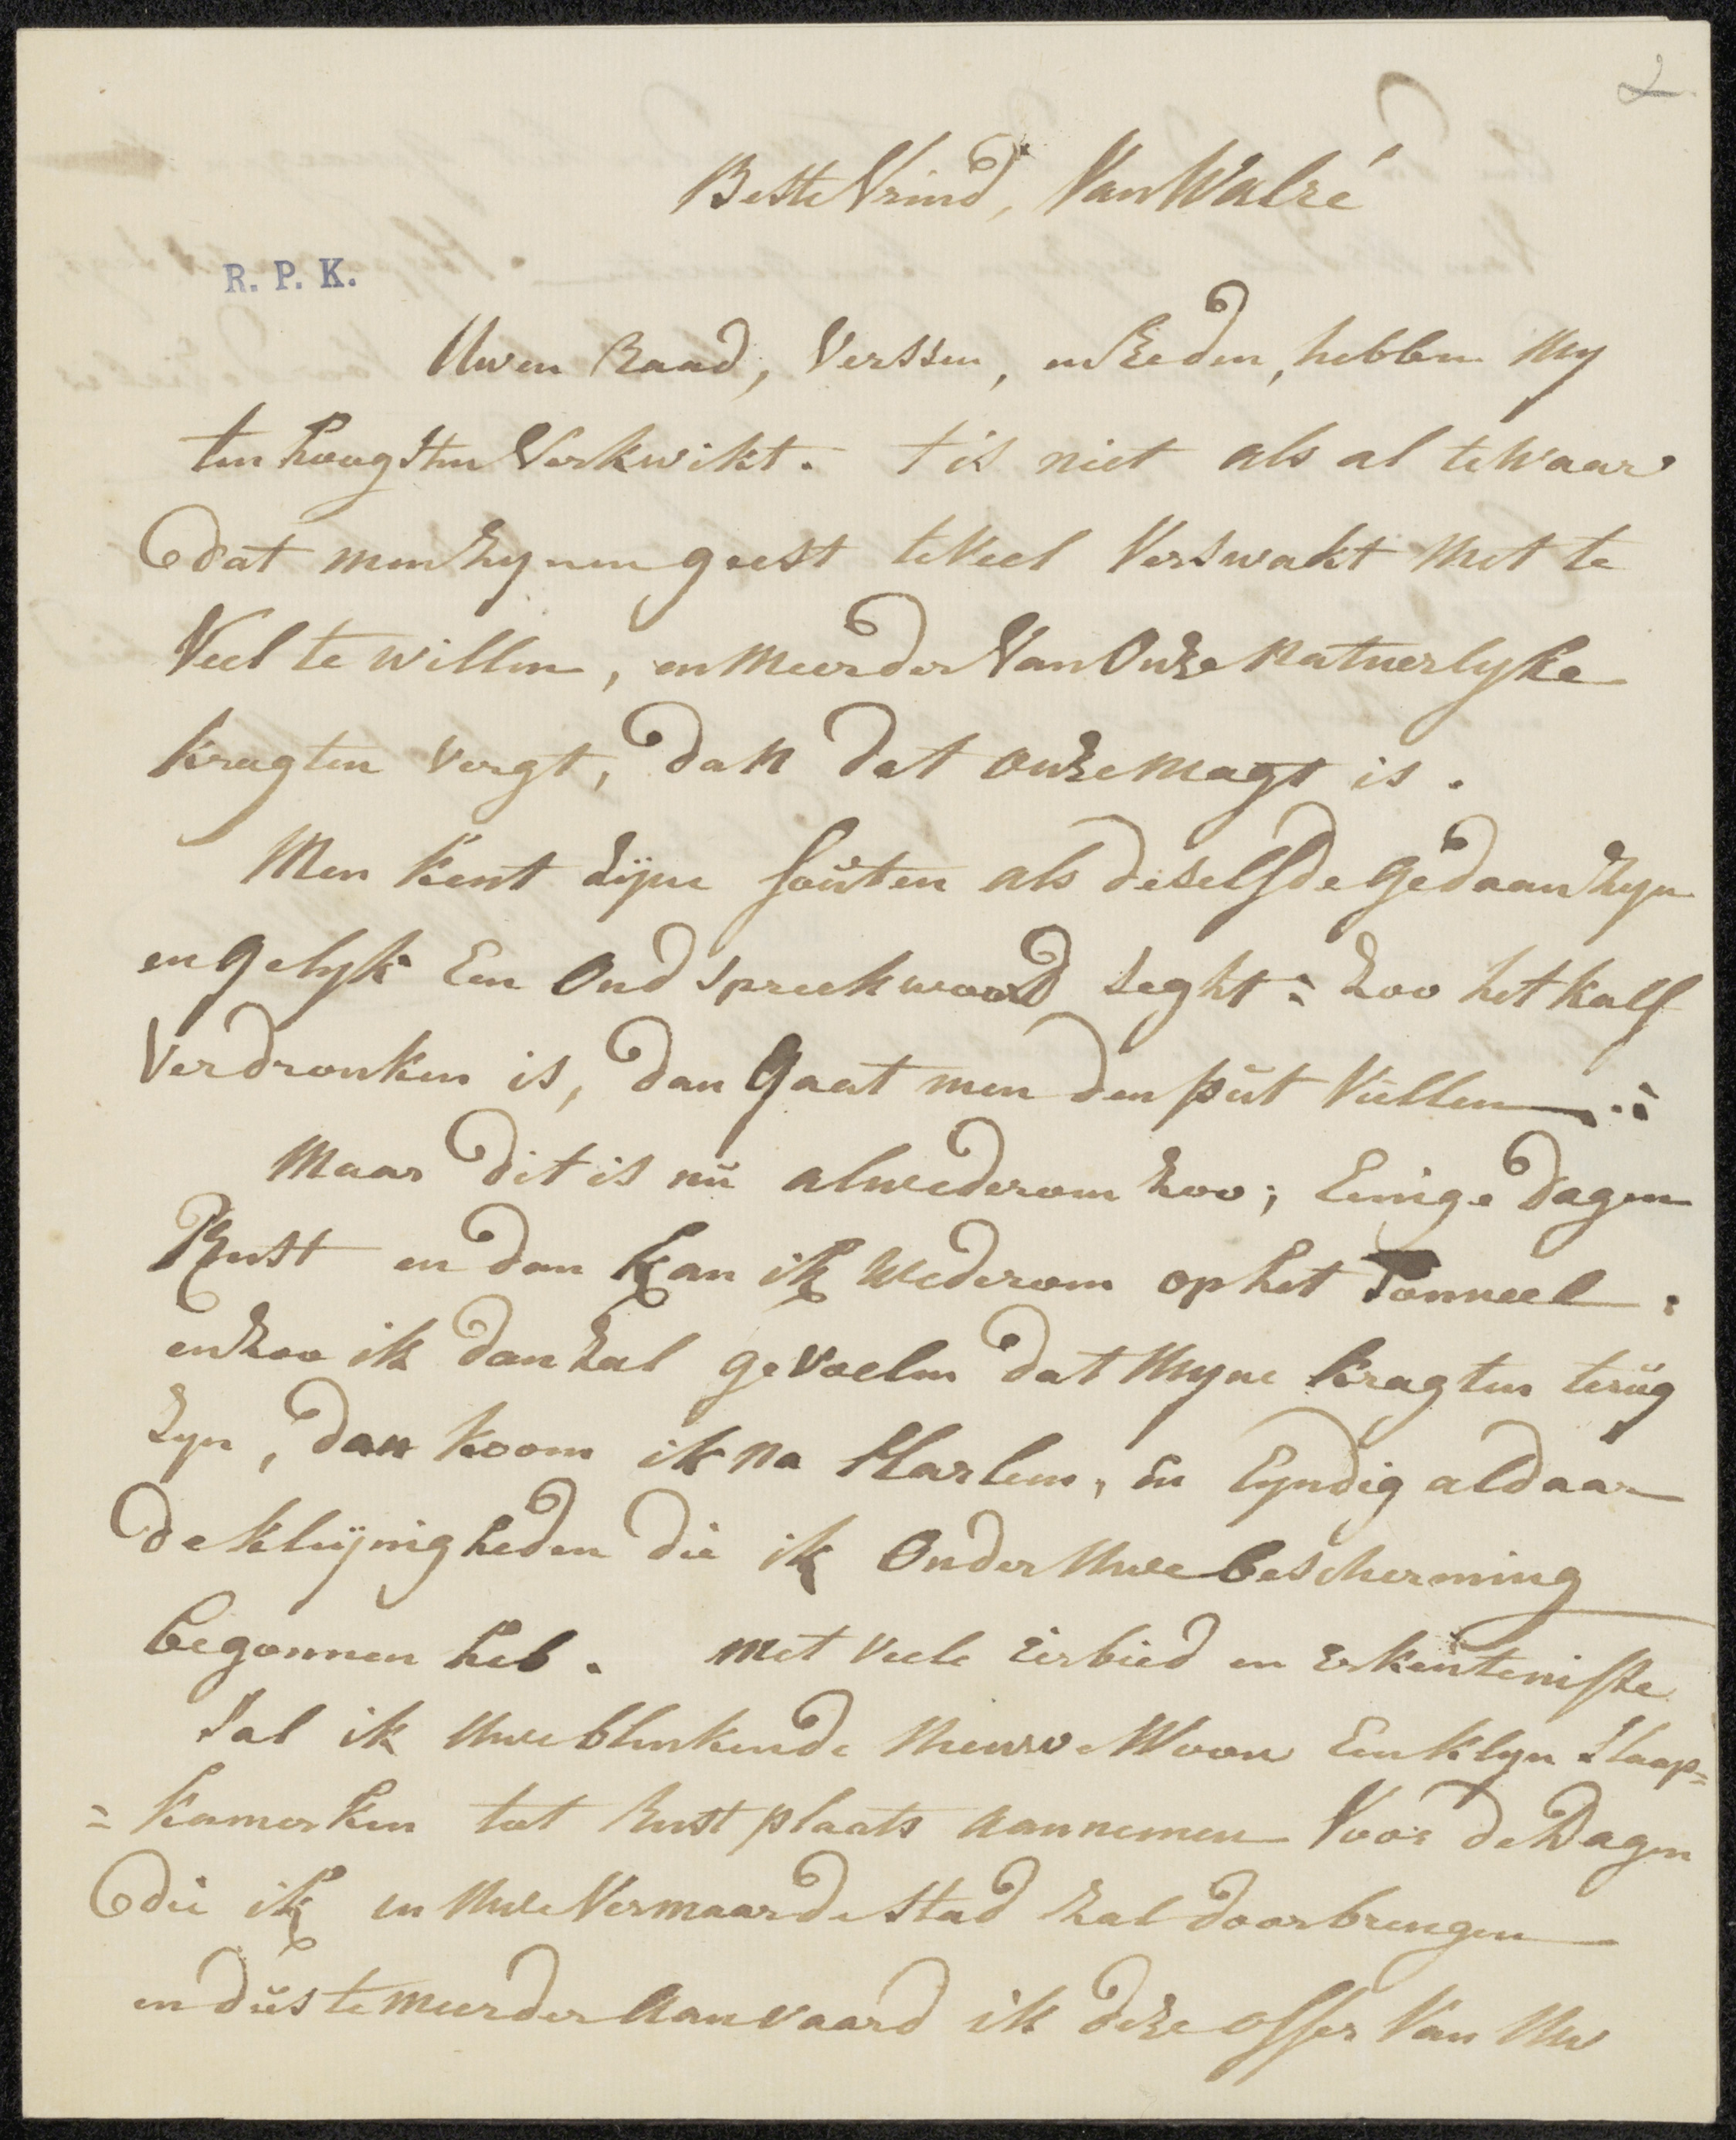 2
Beste Vrind, Van Walré
R. P. K.
Uwen Raad, Verssen, en Reden, hebben My
ten hoogsten Verkwikt. t is niet als al te Waar
dat men zynen geest te Veel Verswakt Met te
Veel te willen, en Meerder Van Onze Natuerlyke
kragten vergt, dan dat onze Magt is.
Men kent zijne fouten als deselfde gedaan zyn
en gelyk Een Oud spreekwoord seght: zoo het kalf
Verdronken is, dan gaat men den put Vullen
Maar dit is nu alwederom zoo; Einige dagen
Rust en dan kan ik Wederom op het Tonneel.
en zoo ik dan zal gevoelen dat Myne kragten terug
zyn, dan koom ik na Harlem, en Eyndig aldaar
de klijnigheden die ik Onder Uwe bescherming
begonnen heb. Met veele Eerbied en Erkenteniste
Sal ik Uwe blinkende Nieuwe Woon Een klyn Slaap=
=kamerken tot Rustplaats Aannemen Voor de Dagen
die ik in Uwe Vermaarde Stad zal doorbrengen
en dus te meerder Aanvaard ik deze offer Van Uw